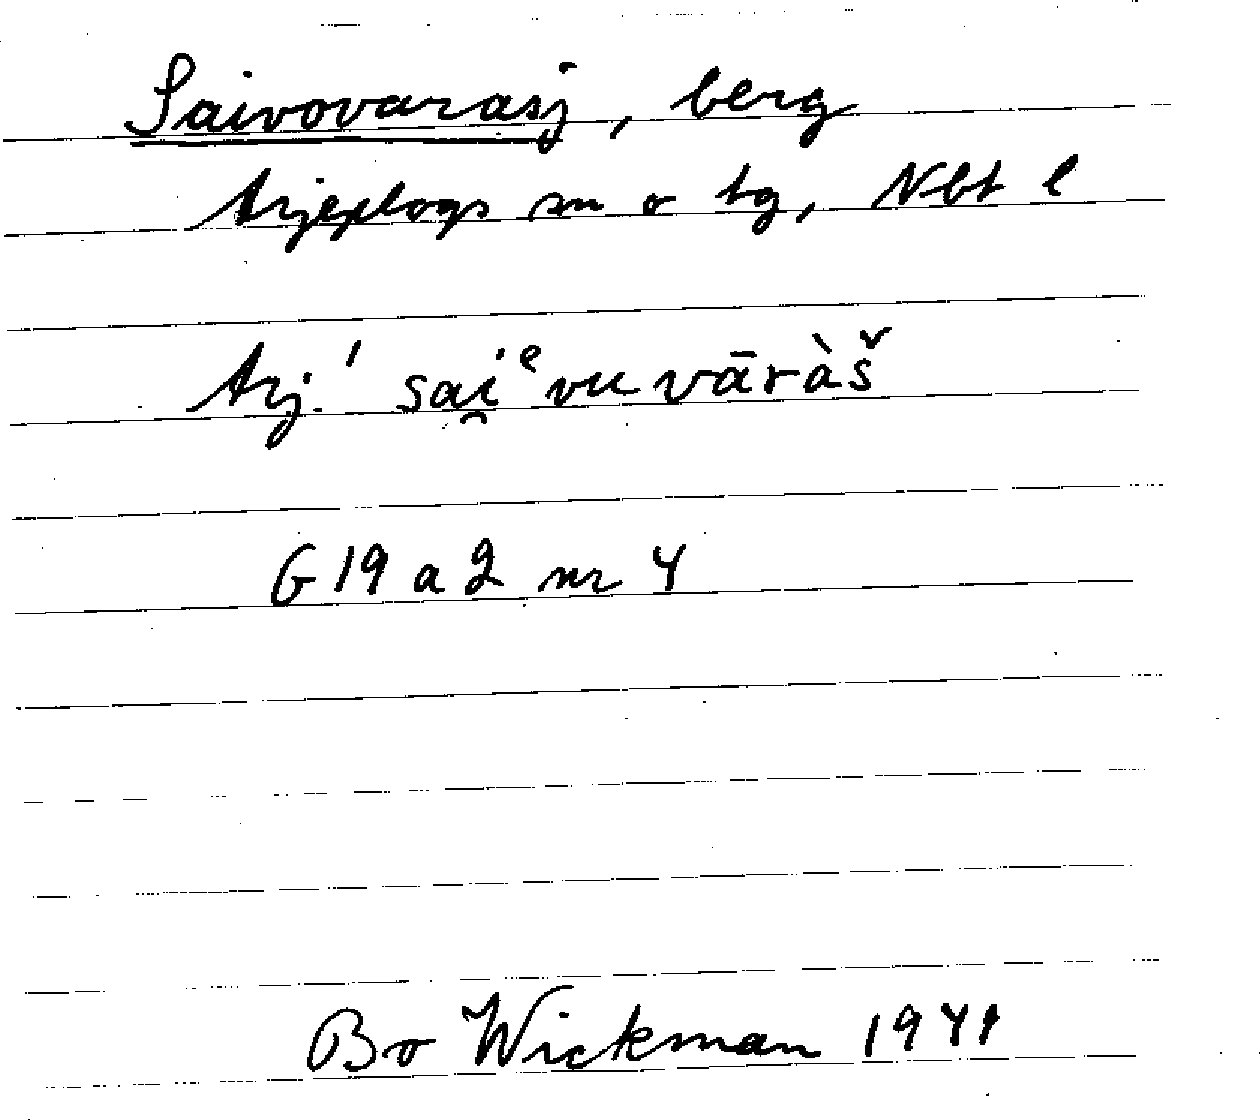 Saivovarasj, berg
Arjeplogs sn o tg, Nbt l
Arj. ˈsai̯ᵉvuvāràš
G 19 a 2 nr 4
Bo Wickman 1941